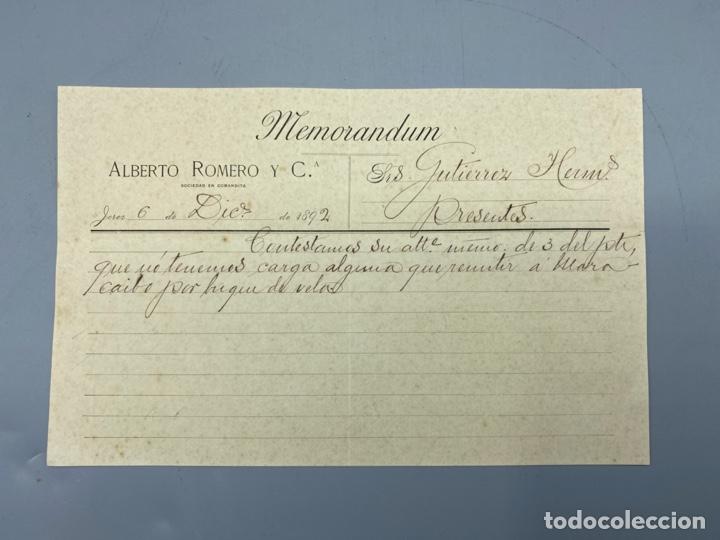 Memorandum
ALBERTO ROMERO Y C.ᴬ
SOCIEDAD EN COMANDITA
Jerez 6 de Dic.e de 1892
Srs. Gutiérrez Herm.s
Presentes.
Contestamos su att.º memo: de 3 del pte,
que no tenemos carga alguna que remitir á Mara-
caibo por buque de vela
todocoleccion
todocoleccion.net